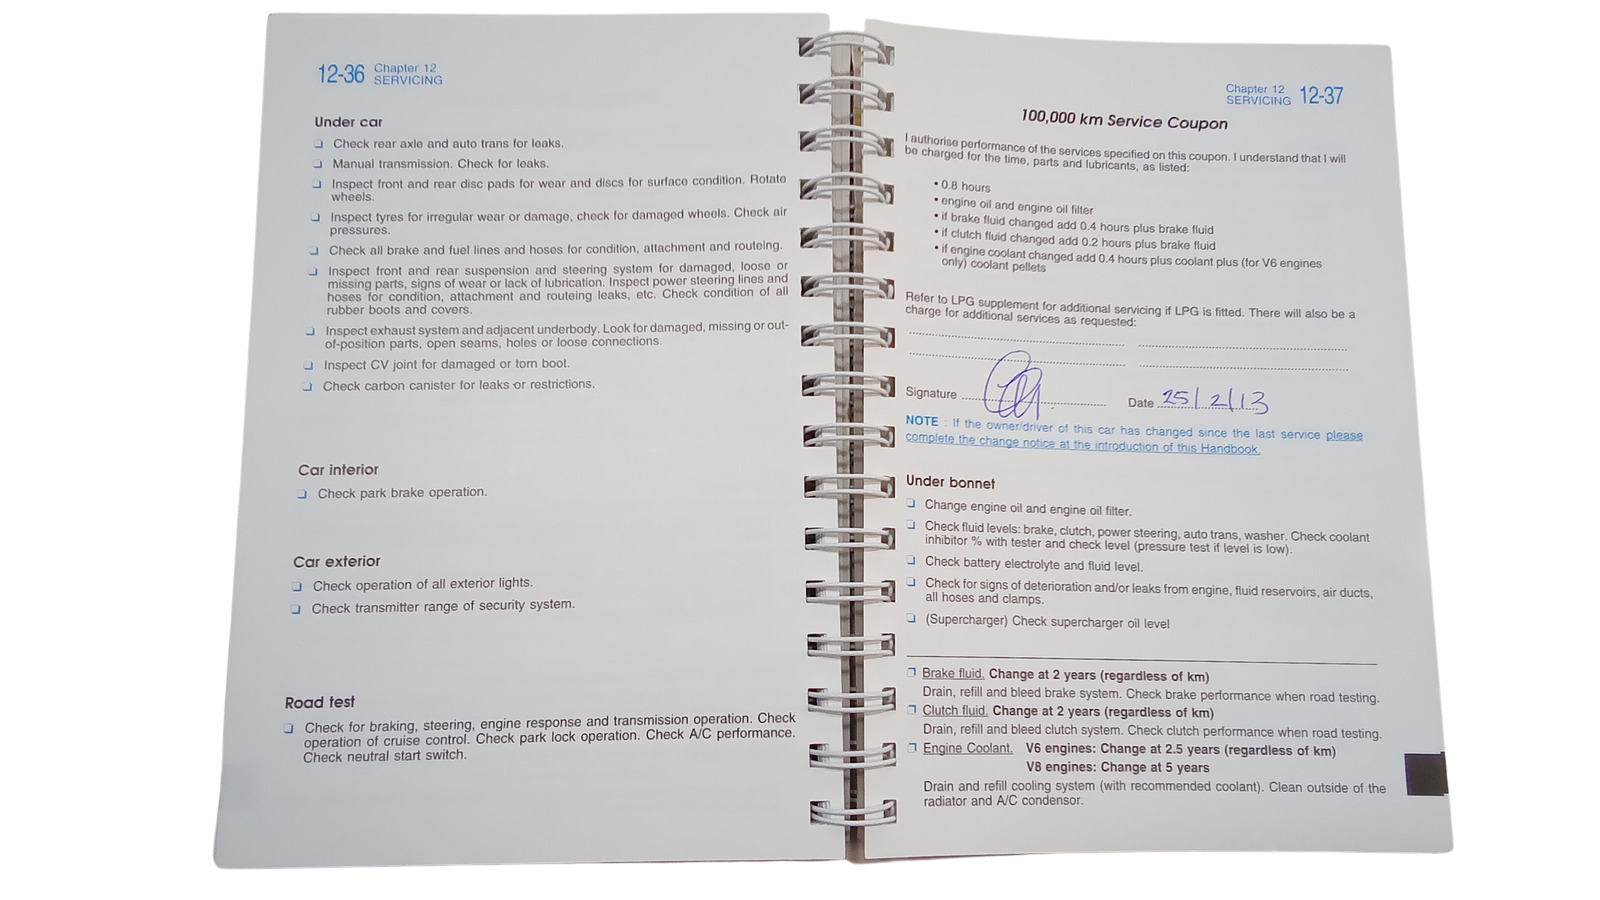 12-36 Chapter 12
SERVICING
Under car
Check rear axle and auto trans for leaks.
Manual transmission. Check for leaks.
Inspect front and rear disc pads for wear and discs for surface condition. Rotate
wheels.
Inspect tyres for irregular wear or damage, check for damaged wheels. Check air
pressures.
Check all brake and fuel lines and hoses for condition, attachment and routeing.
Inspect front and rear suspension and steering system for damaged, loose or
missing parts, signs of wear or lack of lubrication. Inspect power steering lines and
hoses for condition, attachment and routeing leaks, etc. Check condition of all
rubber boots and covers.
Inspect exhaust system and adjacent underbody. Look for damaged, missing or out-
of-position parts, open seams, holes or loose connections.
Inspect CV joint for damaged or torn boot.
Check carbon canister for leaks or restrictions.
Car interior
Check park brake operation.
Car exterior
Check operation of all exterior lights.
Check transmitter range of security system.
Road test
Check for braking, steering, engine response and transmission operation. Check
operation of cruise control. Check park lock operation. Check A/C performance.
Check neutral start switch.
Chapter 12
SERVICING 12-37
100,000 km Service Coupon
I authorise performance of the services specified on this coupon. I understand that I will
be charged for the time, parts and lubricants, as listed:
• 0.8 hours
• engine oil and engine oil filter
• if brake fluid changed add 0.4 hours plus brake fluid
• if clutch fluid changed add 0.2 hours plus brake fluid
• if engine coolant changed add 0.4 hours plus coolant plus (for V6 engines
only) coolant pellets
Refer to LPG supplement for additional servicing if LPG is fitted. There will also be a
charge for additional services as requested:
Signature Date 25/2/13
NOTE : If the owner/driver of this car has changed since the last service please
complete the change notice at the introduction of this Handbook.
Under bonnet
Change engine oil and engine oil filter.
Check fluid levels: brake, clutch, power steering, auto trans, washer. Check coolant
inhibitor % with tester and check level (pressure test if level is low).
Check battery electrolyte and fluid level.
Check for signs of deterioration and/or leaks from engine, fluid reservoirs, air ducts,
all hoses and clamps.
(Supercharger) Check supercharger oil level
Brake fluid. Change at 2 years (regardless of km)
Drain, refill and bleed brake system. Check brake performance when road testing.
Clutch fluid. Change at 2 years (regardless of km)
Drain, refill and bleed clutch system. Check clutch performance when road testing.
Engine Coolant. V6 engines: Change at 2.5 years (regardless of km)
V8 engines: Change at 5 years
Drain and refill cooling system (with recommended coolant). Clean outside of the
radiator and A/C condensor.